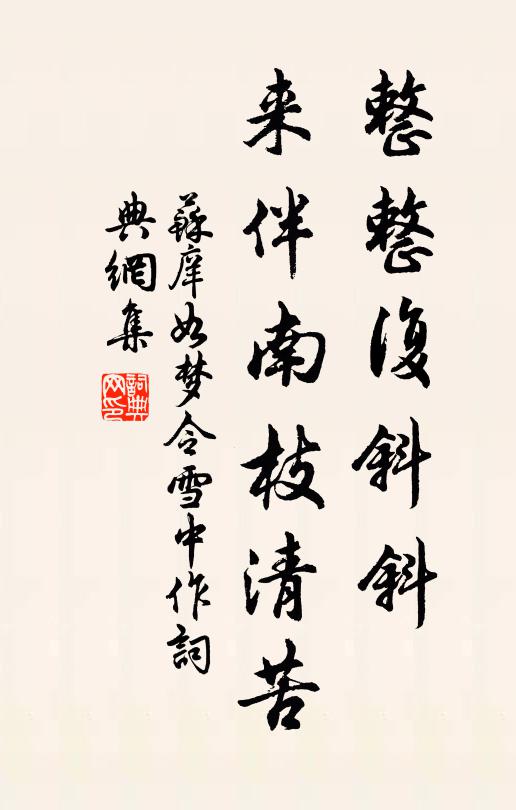 整整復斜斜
来伴南枝清苦
蘇庠如梦令雪中作詞
典網集
詞典网印